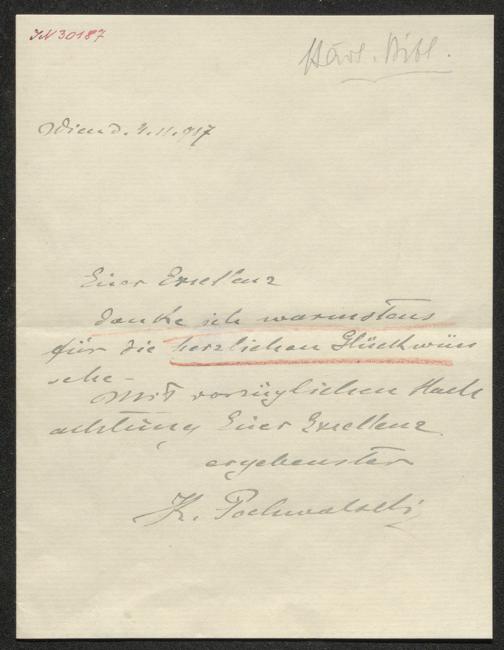 IN 30187
Wien d. 4.11.917
Euer Exellenz
danke ich warmstens
für die herzlichen Glückwün
sche-
Mit vorzüglichen Hoch
achtung Euer Exellenz
ergebenster
K. Pochwalski